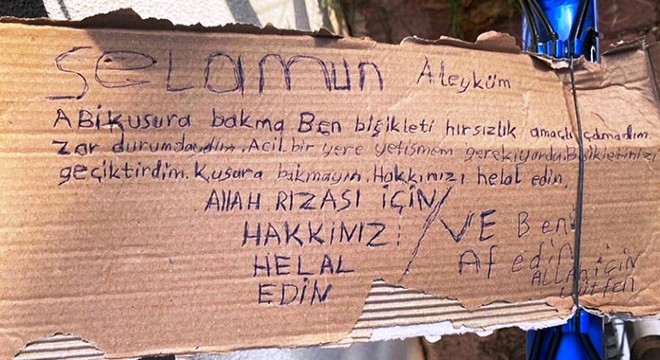 Selamun Aleyküm
ABi kusura bakma Ben bisikleti hırsızlık amaçlı çalmadım
zor durumdaydım. Acil bir yere yetişmem gerekiyordu. Bisikletinizi
geçiktirdim. Kusura bakmayın. Hakkınızı helal edin.
ALLAH RIZASI İÇİN
HAKKINIZI
HELAL
EDİN
VE Beni
Af edin
ALLAH için
Lütfen